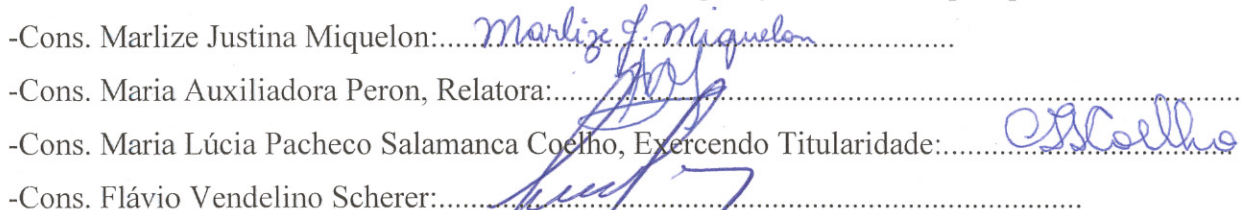 -Cons. Marlize Justina Miquelon:.... Marlize J. Miquelon ................
-Cons. Maria Auxiliadora Peron, Relatora:....
-Cons. Maria Lúcia Pacheco Salamanca Coelho, Exercendo Titularidade:...... Coelho
-Cons. Flávio Vendelino Scherer:....